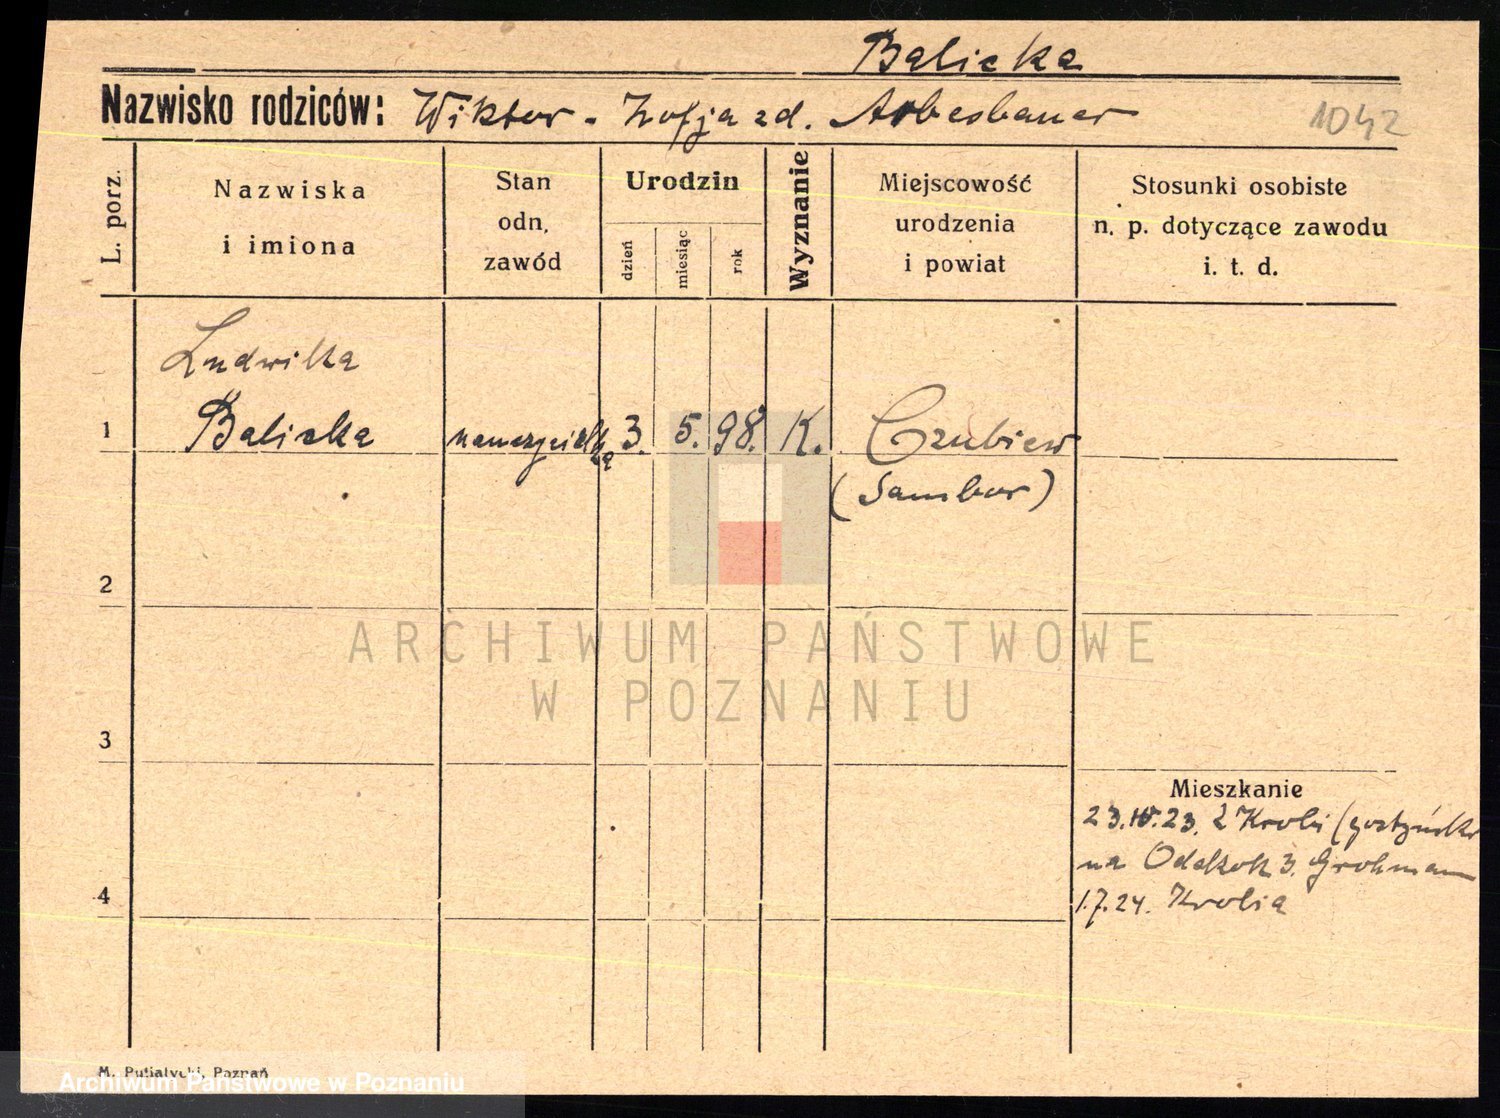 Balicka
Nazwisko rodziców: Wiktor - Zofja zd. Arbesbauer
1042
L. porz.
Nazwiska
i imiona
Stan
odn.
zawód
Urodzin
dzień
miesiąc
rok
Wyznanie
Miejscowość
urodzenia
i powiat
Stosunki osobiste
n. p. dotyczące zawodu
i. t. d.
Ludwika
1 Balicka nauczycielka 3. 5. 98. K. Czubiew
(Sambor)
2
ARCHIWUM PAŃSTWOWE
W POZNANIU
3
Mieszkanie
23.IV.23. z Krobi (gostyński
na Odskok 3. Grohmann
4
1.7.24. Krobia
M. Putiatycki, Poznań
Archiwum Państwowe w Poznaniu